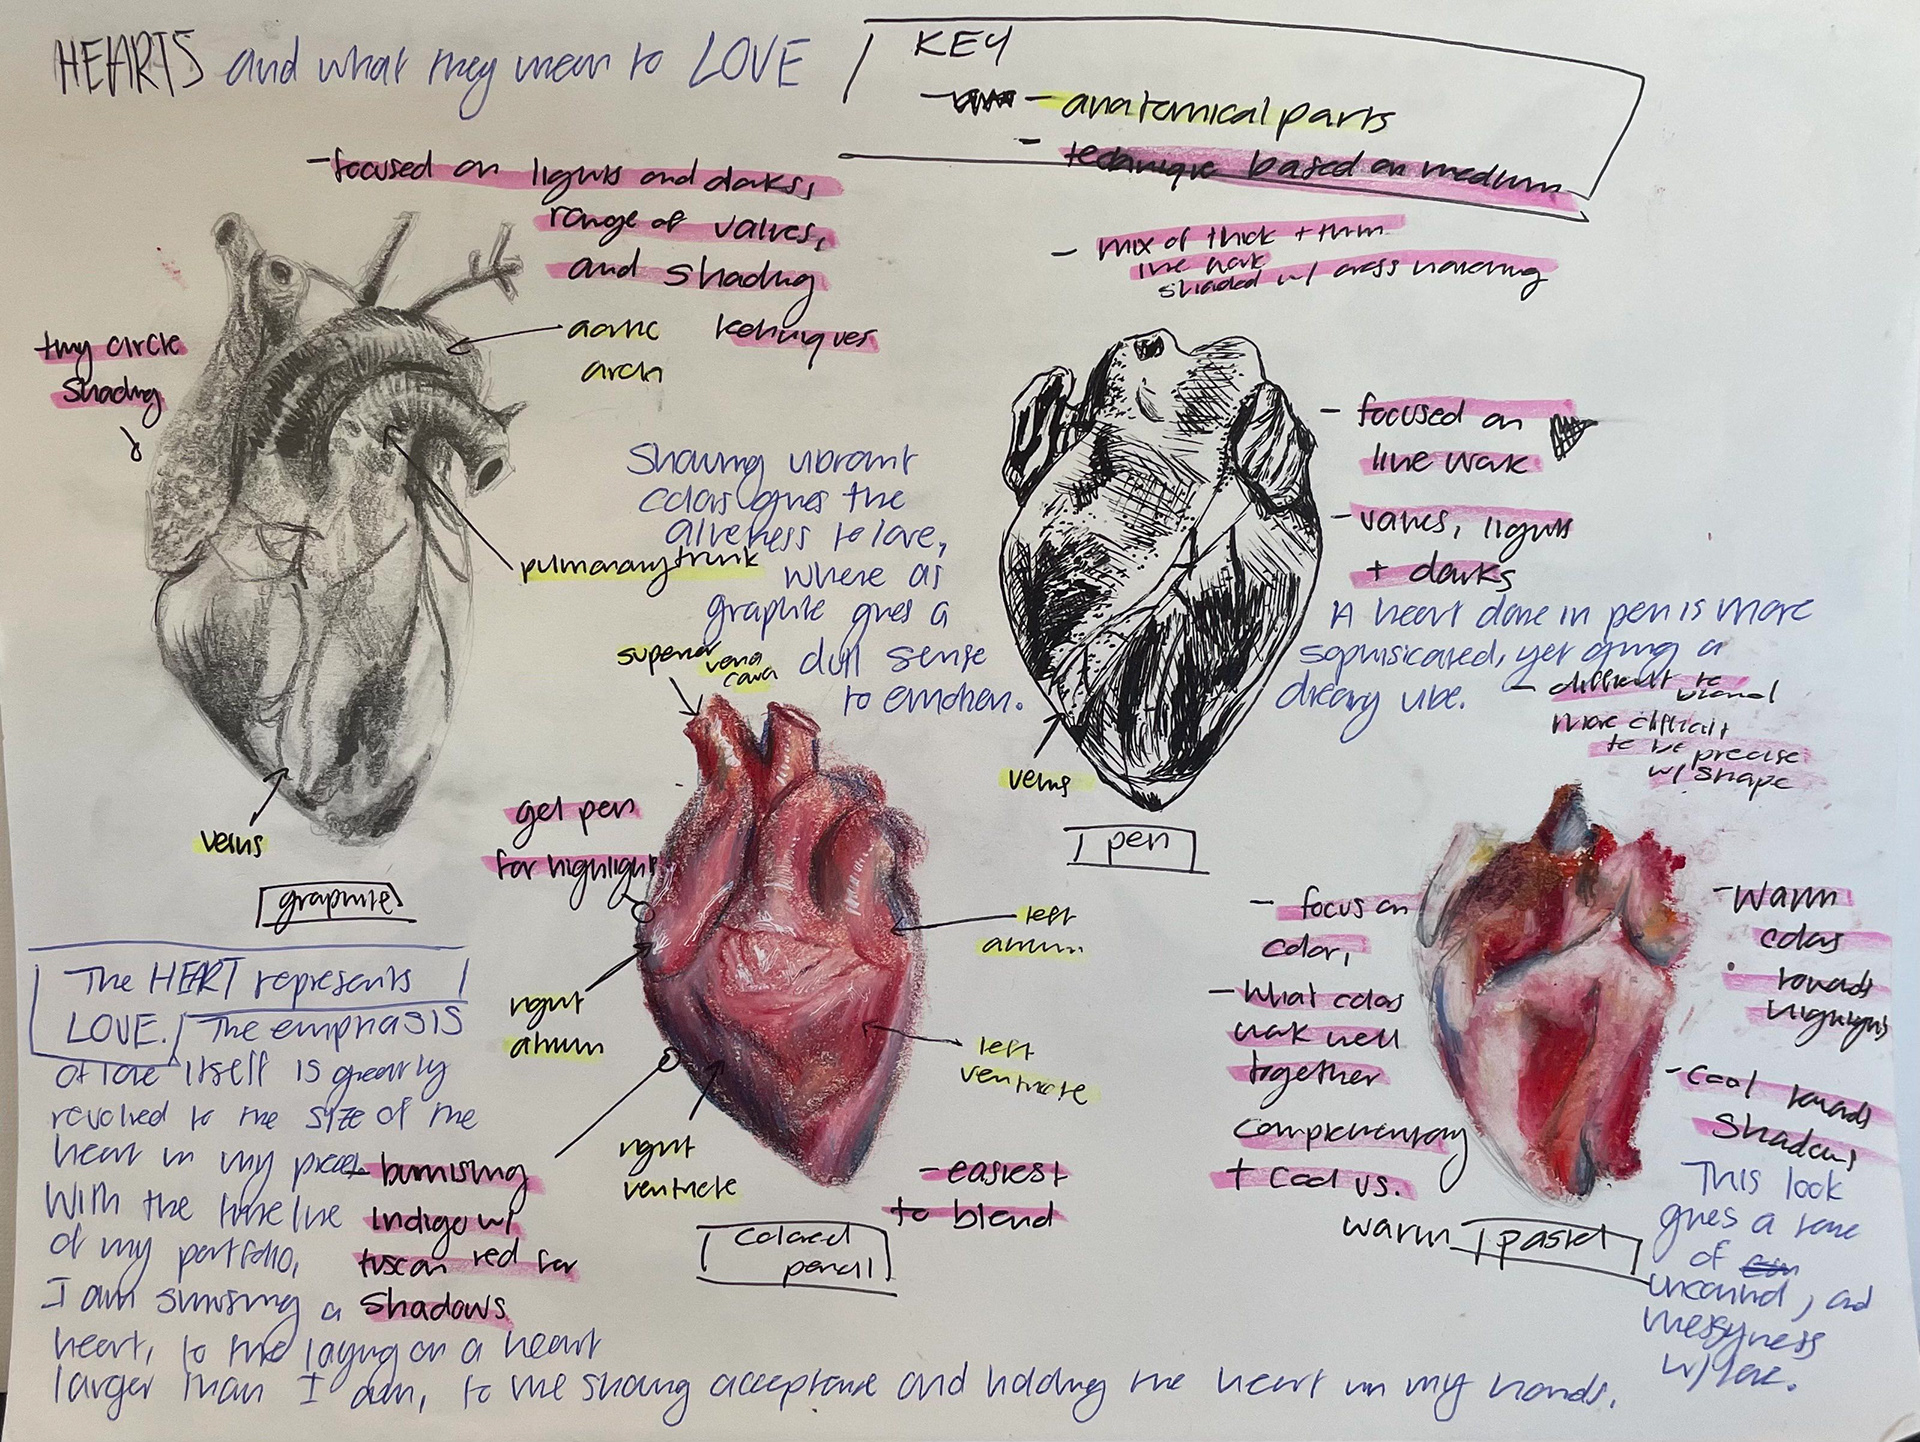 HEARTS and what they mean to LOVE
KEY
- anatomical parts
- technique based on medium
- focused on lights and darks,
range of values,
and shading
techniques
tiny circle
shading
aortic
arch
pulmonary trunk
veins
graphite
Showing vibrant
colors gives the
aliveness to love,
where as
graphite gives a
dull sense
to emotion.
- mix of thick + thin
line work
shaded w/ cross hatching
- focused on
line work
- values, lights
+ darks
A heart done in pen is more
sophisicated, yet giving a
dreary vibe.
veins
pen
superior vena
cava
gel pen
for highlight
right
atrium
left
atrium
left
ventricle
right
ventricle
- burnising
indigo w/
tuscan red for
shadows
- easiest
to blend
colored
pencil
- difficult to
blend
more difficult
to be precise
w/ shape
- focus on
color,
- what colors
work well
together
complementary
+ cool vs.
warm
pastel
- warm
colors
towards
highlights
- cool towards
shadows
This look
gives a tone
of
and
messyness
w/ love.
The HEART represents
LOVE. The emphasis
of love itself is greatly
revolved to the size of the
heart in my
With the timeline
of my portfolio,
I am a
heart, to me laying on a heart
larger than I am, to me showing acceptance and holding the heart in my hands.